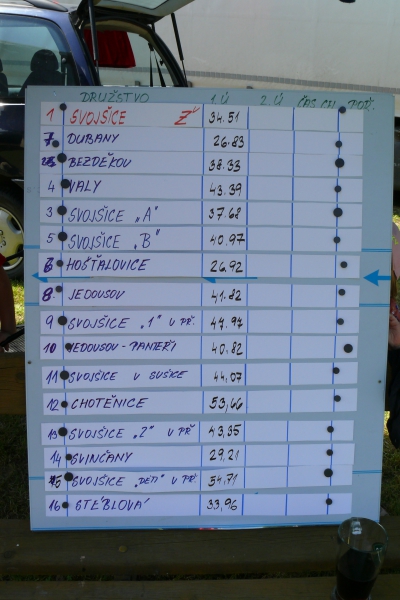 DRUŽSTVO 1.Ú 2.Ú ČAS CEL. POŘ.
1 SVOJŠICE Ž 34.51
7 DUBANY 26.83
BEZDĚKOV 38.33
4 VALY 43.39
3 SVOJŠICE „A" 37.68
5 SVOJŠICE „B" 40,97
6 HOŠŤALOVICE 26.92
8 JEDOUSOV 41.82
9 SVOJŠICE „1" V PŘ. 47.97
10 JEDOUSOV - PANTEŘI 40.82
11 SVOJŠICE V SUŠICE 44,07
12 CHOTĚNICE 53,66
13 SVOJŠICE „2" V PŘ 43,35
14 SVINČANY 29,21
15 SVOJŠICE „DĚTI" V PŘ. 54,71
16 STÉBLOVÁ 33,96